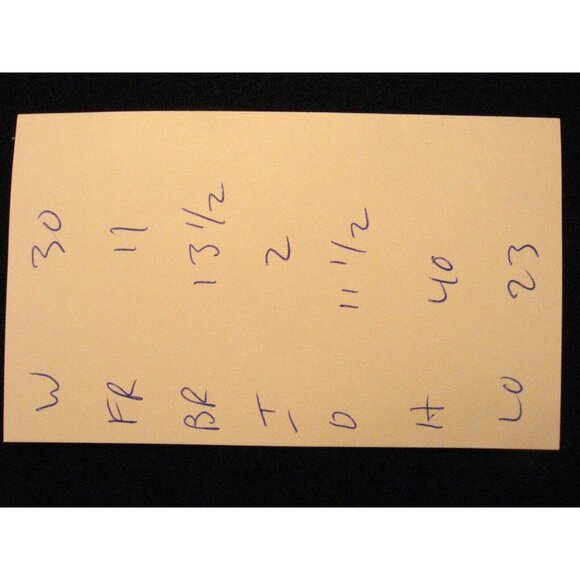 W 30
FR 11
BR 13 1/2
T 2
O 11 1/2
H 40
LO 23